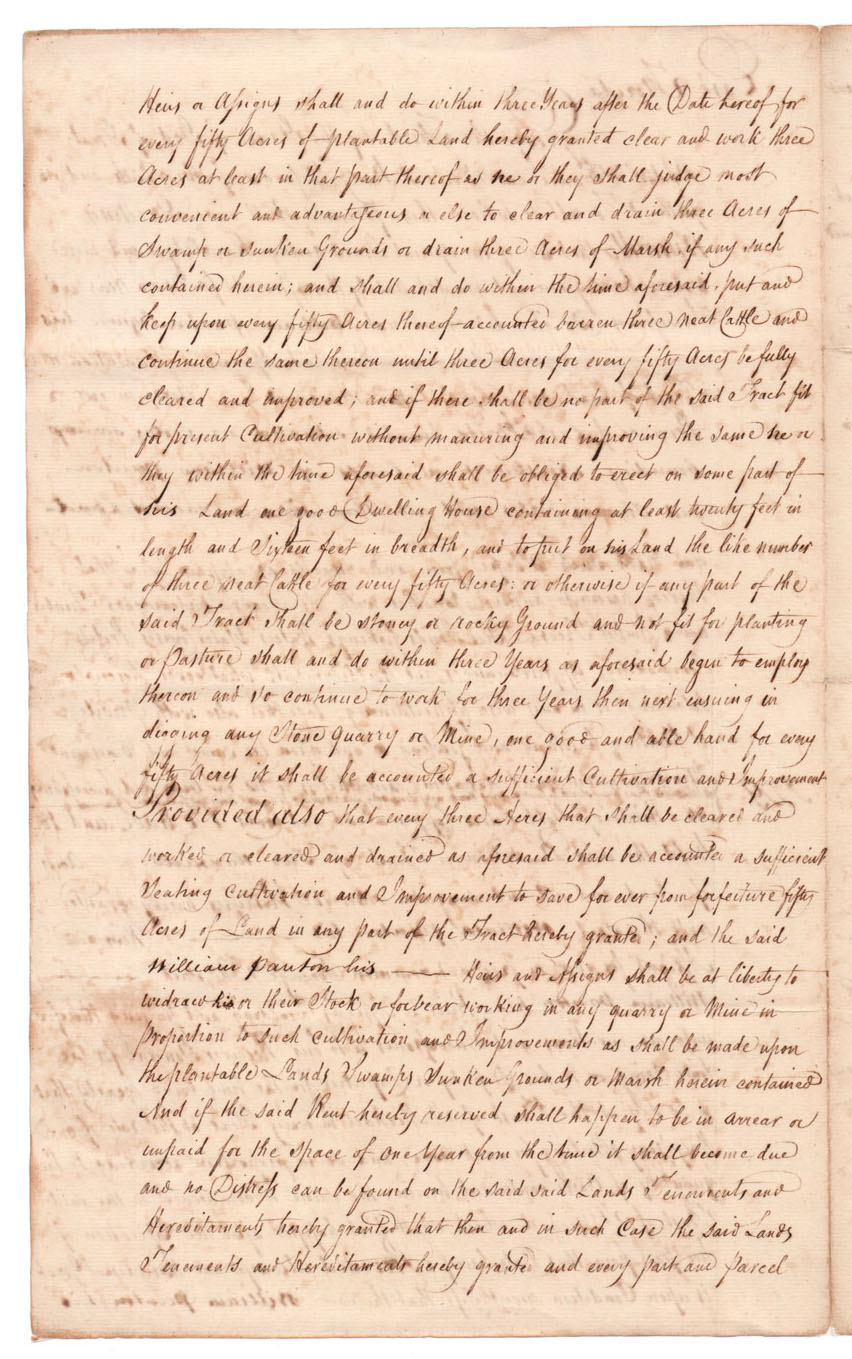 Heirs or Assigns shall and do within three Years after the Date hereof, for
every fifty Acres of plantable Land hereby granted clear and work three
Acres at least in that part thereof as he or they shall judge most
convenient and advantageous or else to clear and drain three Acres of
Swamp or sunken Grounds or drain three Acres of Marsh, if any such
contained herein; and shall and do within the time aforesaid, put and
keep upon every fifty Acres thereof accounted barren three neat Cattle and
continue the same thereon until three Acres for every fifty Acres be fully
cleared and improved; and if there shall be no part of the said Tract fit
for present Cultivation without manuring and improving the same he or
they within the time aforesaid shall be obliged to erect on some part of
his Land one good Dwelling House containing at least twenty feet in
length and Sixteen feet in breadth, and to put on his Land the like number
of three neat Cattle for every fifty Acres: or otherwise if any part of the
said Tract shall be stoney or rocky Ground and not fit for planting
or Pasture shall and do within three Years as aforesaid begin to employ
thereon and so continue to work for three Years then next ensuing in
digging any Stone Quarry or Mine, one good and able hand for every
fifty Acres it shall be accounted a sufficient Cultivation and Improvement
Provided also that every three Acres that shall be cleared and
worked or cleared and drained as aforesaid shall be accounted a sufficient
Seating cultivation and Improvement to save for ever from forfeiture fifty
Acres of Land in any part of the Tract hereby granted; and the said
William Panton his —— Heirs and Assigns shall be at liberty to
widraw his or their Stock or forbear working in any quarry or Mine in
proportion to such cultivation and Improvements as shall be made upon
the plantable Lands Swamps Sunken Grounds or Marsh herein contained
And if the said Rent hereby reserved shall happen to be in arrear or
unpaid for the space of one Year from the time it shall become due
and no Distress can be found on the said said Lands Tenements and
Hereditaments hereby granted that then and in such Case the said Lands
Tenements and Hereditaments hereby granted and every part and Parcel